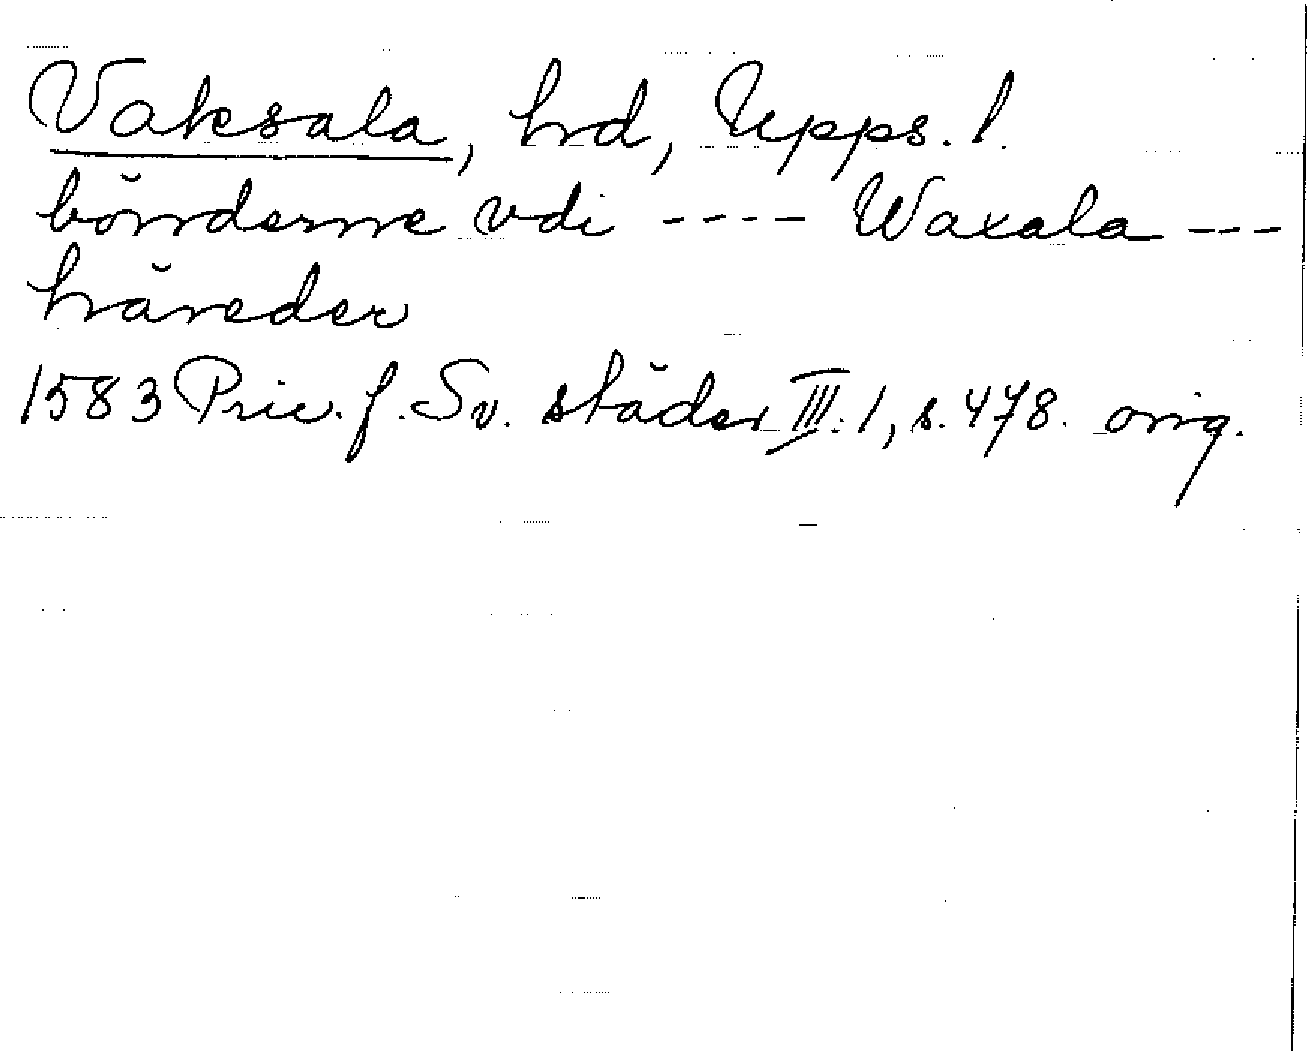 Vaksala, hrd, Upps. l.
bönderne vdi ---- Waxala ---
häreder
1583 Priv. f. Sv. städer III:1, s. 478. orig.